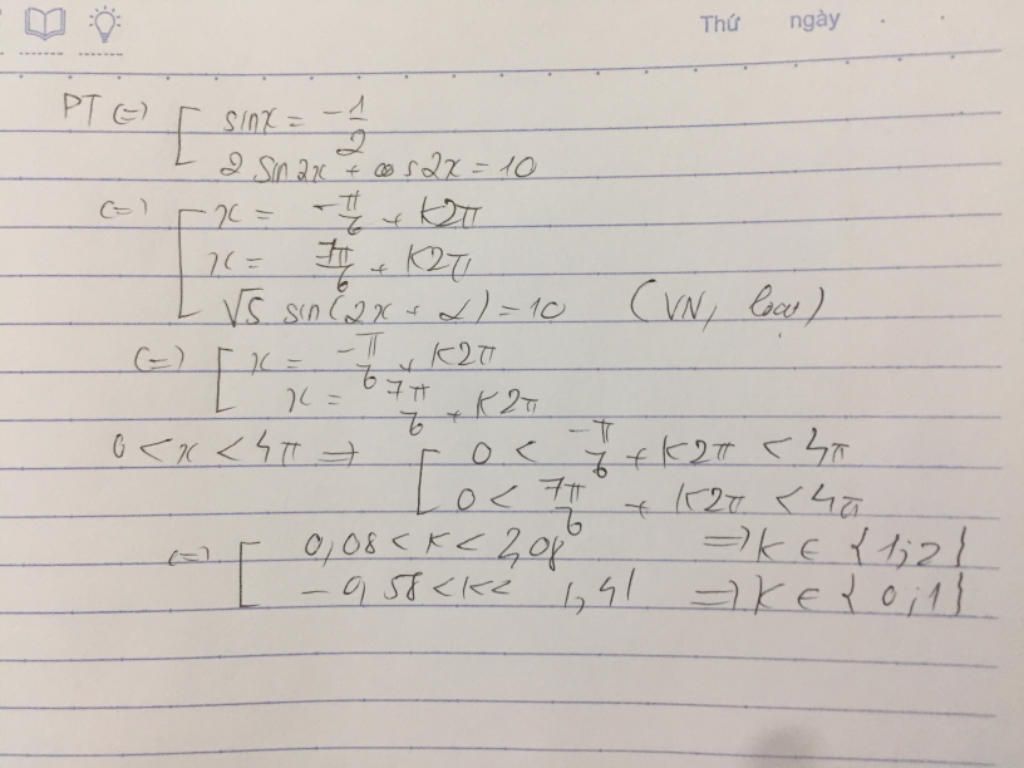 Thứ ngày
PT (=) [ sinx = -1/2
2 sin2x + cos2x = 10
(=) [ x = -π/6 + k2π
x = 7π/6 + k2π
√5 sin(2x + α) = 10 (VN, loại)
(=) [ x = -π/6 + k2π
x = 7π/6 + k2π
0 < x < 4π => [ 0 < -π/6 + k2π < 4π
0 < 7π/6 + k2π < 4π
(=) [ 0,08 < k < 2,08 => k ∈ {1;2}
-0,58 < k < 1,41 => k ∈ {0;1}